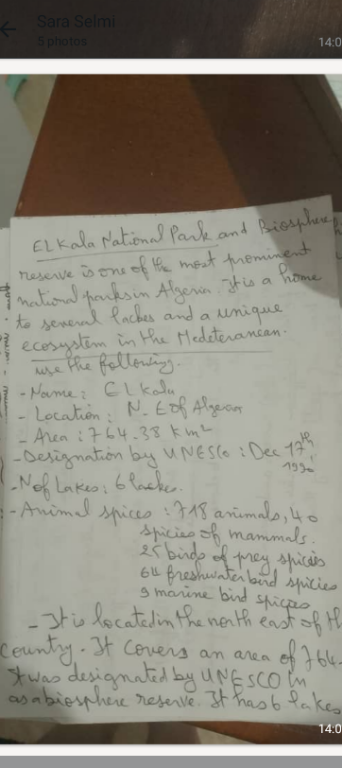 Sara Selmi
5 photos
14:0
EL Kala National Park and Biosphere
reserve is one of the most prominent
national parks in Algeria. It is a home
to several lackes and a unique
ecosystem in the Medeteranean.
use the following.
- Name : EL Kala
- Location : N. E of Algeria
- Area : 764.38 km²
- Designation by UNESCO : Dec 17th
1990
- N of Lakes : 6 lackes.
- Animal spices : 718 animals, 40
spicies of mammals.
25 birds of prey spicies
64 freshwater bird spicies
9 marine bird spicies
- It is located in the north east of th
country. It covers an area of 764.
It was designated by UNESCO in
as a biosphere reserve. It has 6 lakes
14:0